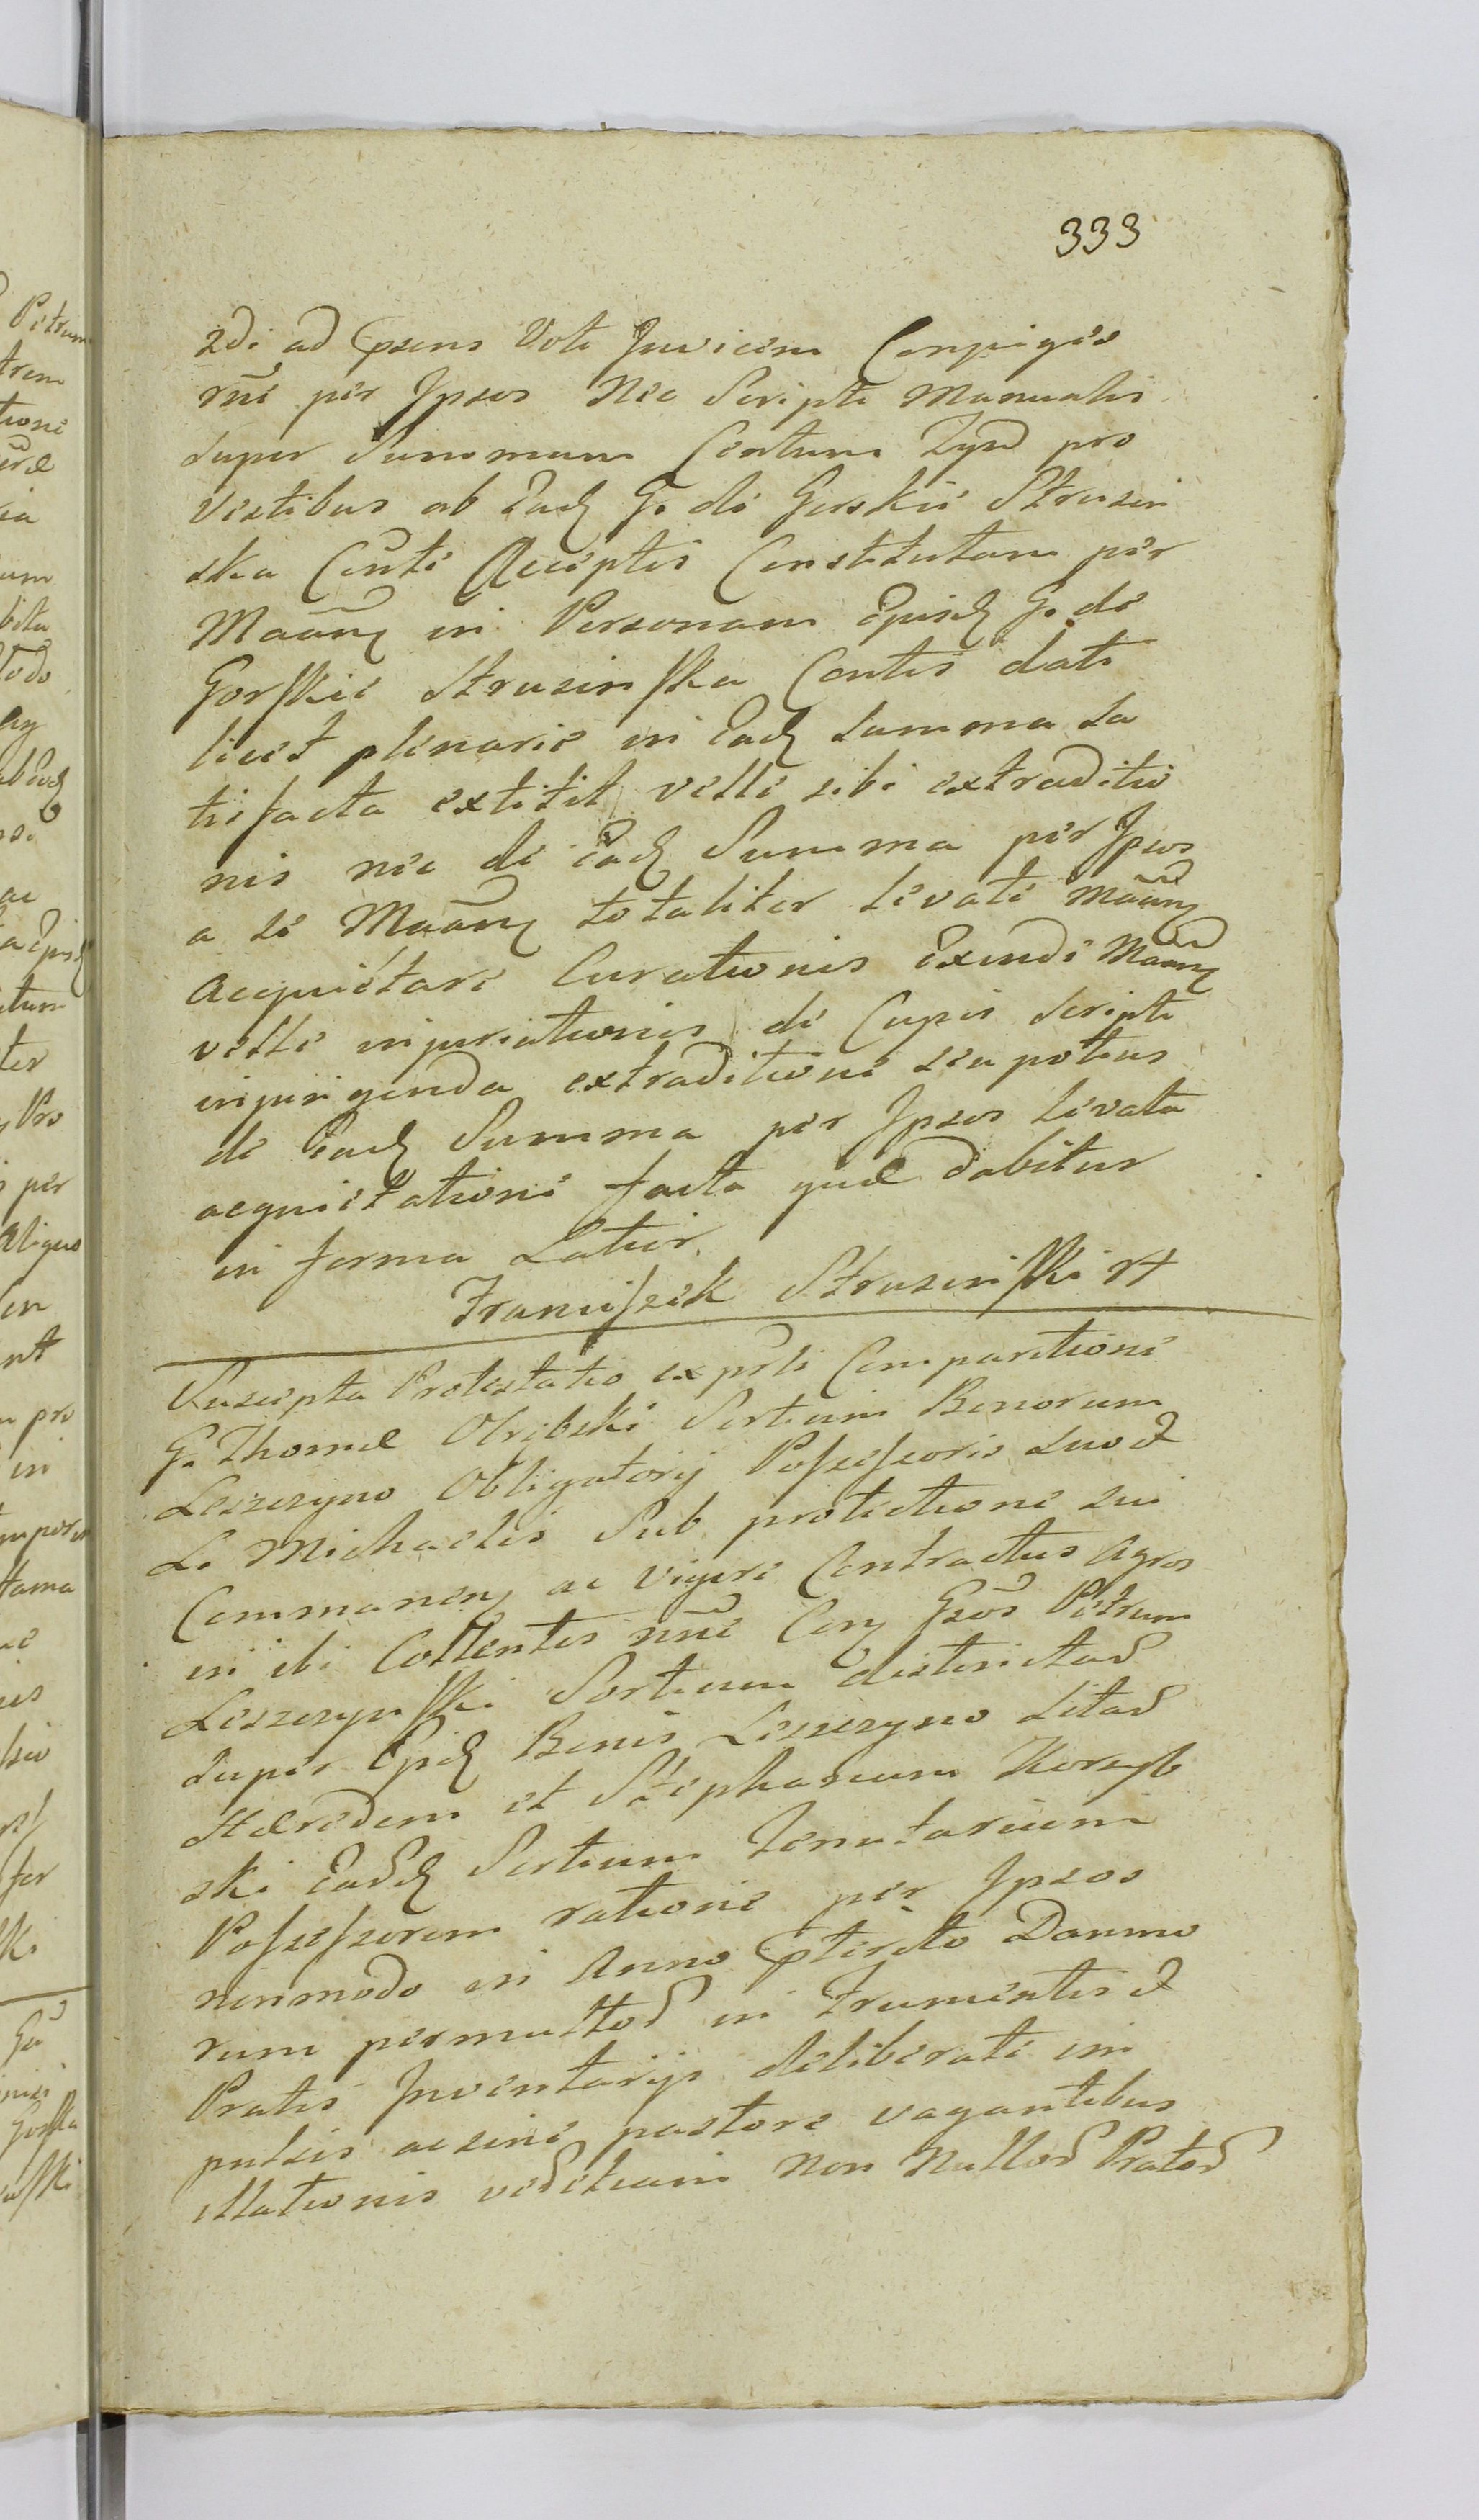 333
2di ad Cpsens Voti Juvicem Conpigís
rñe per Jpsos Nec Scripti Manualis
super Summam Centum Tyn pro
Vestibus ab Eadz G. de Gorskie Strusin
ska Cente Acceptis Constitutam per
Maãnz in Personam Ejusdz G. de
Gorskie Strusinska Contis dati
licet plenarie in Eadz Summa sa
tisfacta extitit velle sibi extraditio
nis nec de Eadz Summa per Jpsos
a se Maãnz totaliter Levate Maãnz
acquietari Curationis Exinde Maãnz
velle injuriationis de Cujus Scripti
inpurigenda extraditione seu potius
de Eadz Summa per Jpsos Levata
acquietatione facta quæ dabitur
in forma Latior.
Franciszek Strusinski
Suscepta Protestatio ex prli Comparitione
G. Thomæ Obrębski Sortium Bonorum
Leszczyno Obligatorij Possessoris suo et
L. Michaelis Sub protectione sui
Commanenz ac vigore Contractus Agros
in ibi Collentis rñe Conz Gsos Petrum
Leszczynski Sortium districtad
super Ejsdz Bonis Leszczyno Sitad
Hæredem et Stephanum Koryb
ski Eadz Sortium Tenutarium
Possessorem ratione per Jpsos
nonmodo in Anno Cpterito Damno
rum permultod in Frumentis et
Pratis Jnventarijs deliberate im
pulsis ac sine pastore vagantibus
illationis vedetiam Non Nullod Pratod